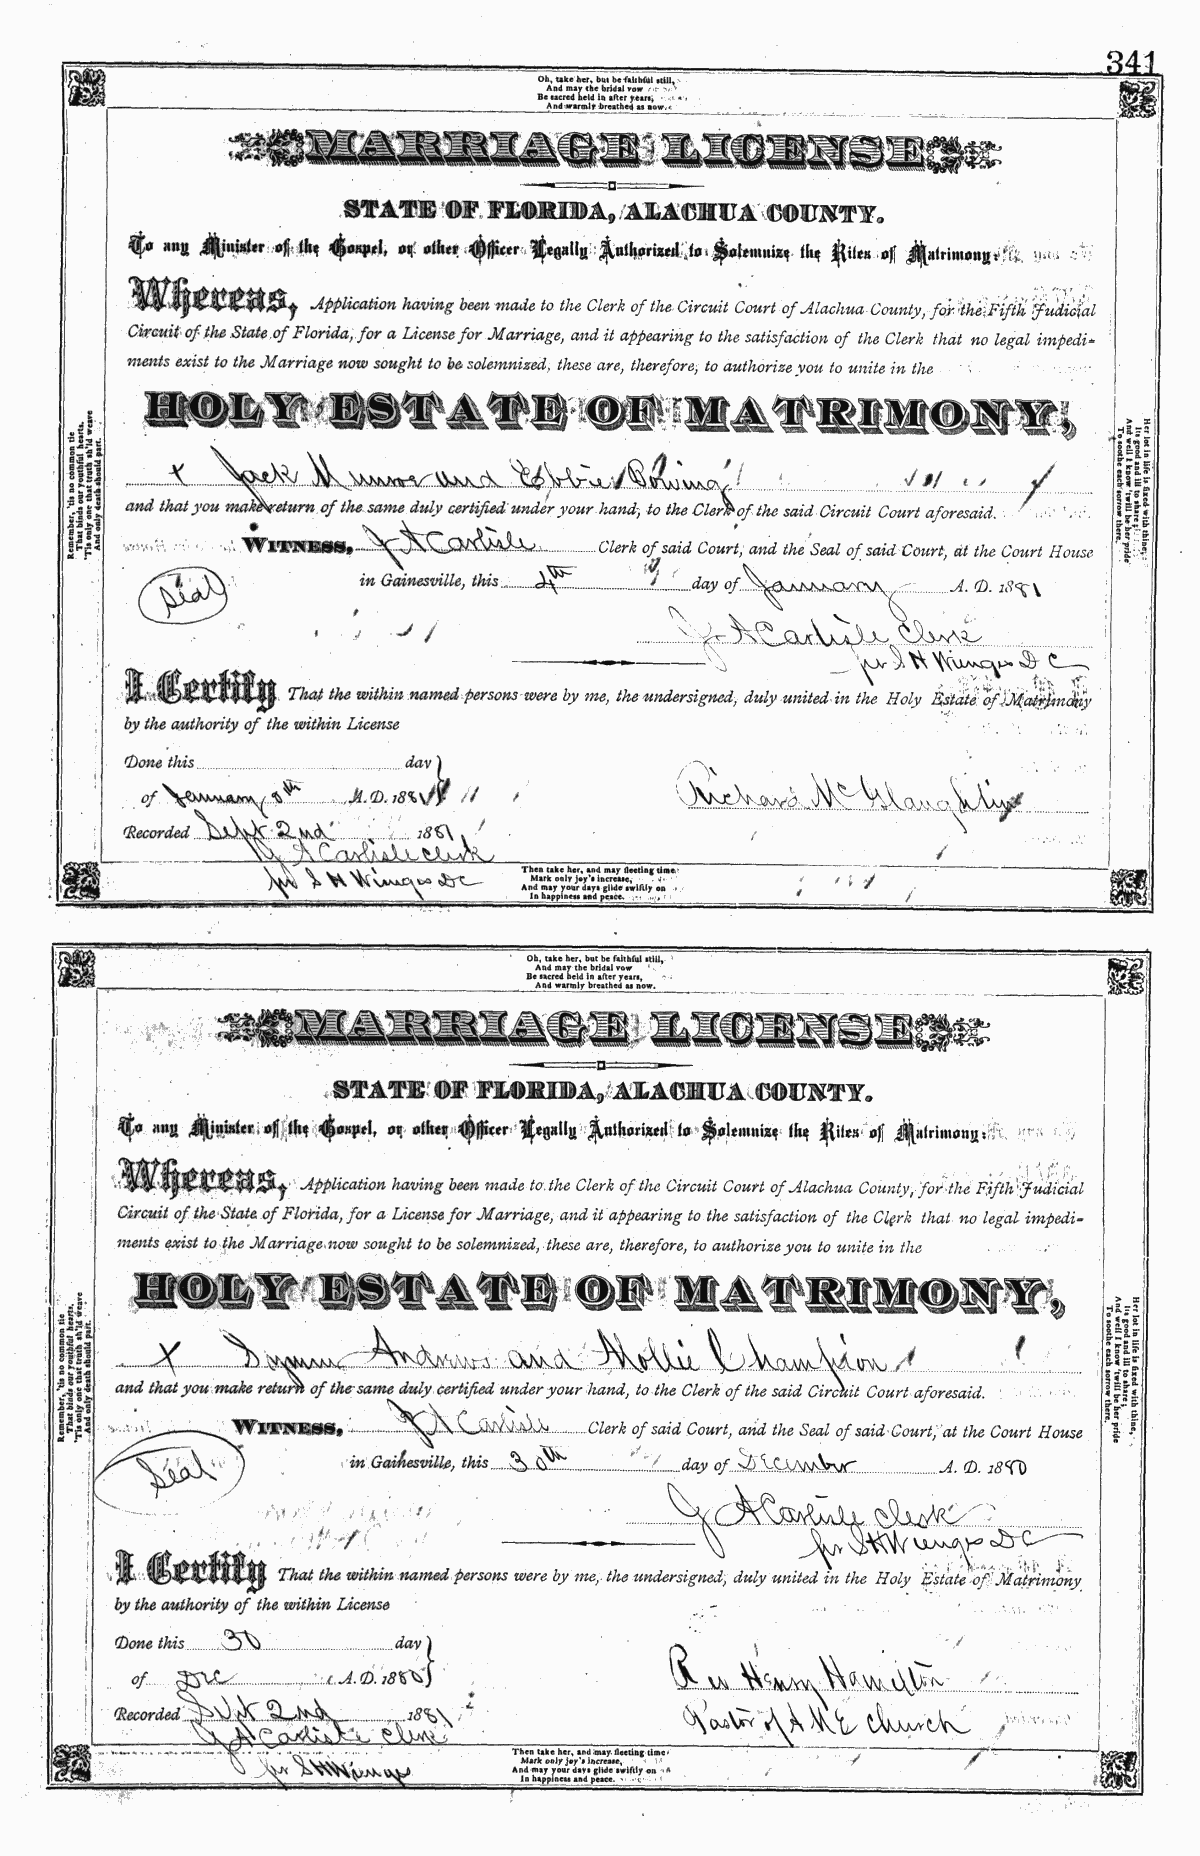 341
Oh, take her, but be faithful still,
And may the bridal vow
Be sacred held in after years,
And warmly breathed as now.
MARRIAGE LICENSE
STATE OF FLORIDA, ALACHUA COUNTY.
To any Minister of the Gospel, or other Officer Legally Authorized to Solemnize the Rites of Matrimony:
Whereas, Application having been made to the Clerk of the Circuit Court of Alachua County, for the Fifth Judicial
Circuit of the State of Florida, for a License for Marriage, and it appearing to the satisfaction of the Clerk that no legal impedi-
ments exist to the Marriage now sought to be solemnized, these are, therefore, to authorize you to unite in the
HOLY ESTATE OF MATRIMONY,
x Jack Munroe and Ebbie
and that you make return of the same duly certified under your hand, to the Clerk of the said Circuit Court aforesaid.
WITNESS, J A Carlisle Clerk of said Court, and the Seal of said Court, at the Court House
in Gainesville, this 4th day of January A. D. 1881
Seal
J A Carlisle Clerk
pr S H Wienges D C
I Certify That the within named persons were by me, the undersigned, duly united in the Holy Estate of Matrimony
by the authority of the within License
Done this day
of January A. D. 1881
Richard McGlaughlin
Recorded Sept 2nd 1881
J A Carlisle clerk
pr S H Wienges DC
Then take her, and may fleeting time
Mark only joy's increase,
And may your days glide swiftly on
In happiness and peace.
Remember, 'tis no common tie
That binds our youthful hearts,
'Tis only one that truth sh'ld weave
And only death should part.
Her lot in life is fixed with thine,
Its good and ill to share;
And well I know 'twill be her pride
To soothe each sorrow there.
Oh, take her, but be faithful still,
And may the bridal vow
Be sacred held in after years,
And warmly breathed as now.
MARRIAGE LICENSE
STATE OF FLORIDA, ALACHUA COUNTY.
To any Minister of the Gospel, or other Officer Legally Authorized to Solemnize the Rites of Matrimony:
Whereas, Application having been made to the Clerk of the Circuit Court of Alachua County, for the Fifth Judicial
Circuit of the State of Florida, for a License for Marriage, and it appearing to the satisfaction of the Clerk that no legal impedi-
ments exist to the Marriage now sought to be solemnized, these are, therefore, to authorize you to unite in the
HOLY ESTATE OF MATRIMONY,
x Andrews and Mollie Champion
and that you make return of the same duly certified under your hand, to the Clerk of the said Circuit Court aforesaid.
WITNESS, J A Carlisle Clerk of said Court, and the Seal of said Court, at the Court House
in Gainesville, this 30th day of December A. D. 1880
Seal
J A Carlisle clerk
pr S H Wienges D C
I Certify That the within named persons were by me, the undersigned, duly united in the Holy Estate of Matrimony
by the authority of the within License
Done this 30 day
of Dec A. D. 1880
Rev Henry Hamilton
Recorded Sept 2nd 1881
Pastor of A M E church
J A Carlisle Clerk
pr S H Wienges
Then take her, and may fleeting time
Mark only joy's increase,
And may your days glide swiftly on
In happiness and peace.
Remember, 'tis no common tie
That binds our youthful hearts,
'Tis only one that truth sh'ld weave
And only death should part.
Her lot in life is fixed with thine,
Its good and ill to share;
And well I know 'twill be her pride
To soothe each sorrow there.